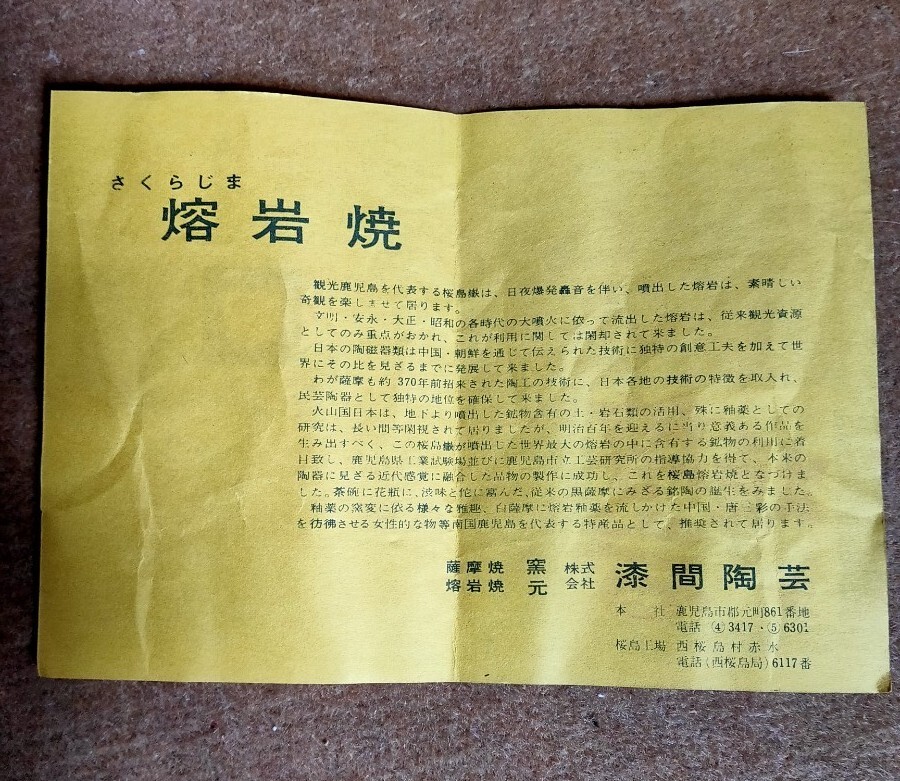 さくらじま
熔岩焼
観光鹿児島を代表する桜島嶽は、日夜爆発轟音を伴い、噴出した熔岩は、素晴しい
奇観を楽しませて居ります。
文明・安永・大正・昭和の各時代の大噴火に依って流出した熔岩は、従来観光資源
としてのみ重点がおかれ、これが利用に関しては閑却されて来ました。
日本の陶磁器類は中国・朝鮮を通じて伝えられた技術に独特の創意工夫を加えて世
界にその比を見ざるまでに発展して来ました。
わが薩摩も約370年前招来された陶工の技術に、日本各地の技術の特徴を取入れ、
民芸陶器として独特の地位を確保して来ました。
火山国日本は、地下より噴出した鉱物含有の土・岩石類の活用、殊に釉薬としての
研究は、長い間等閑視されて居りましたが、明治百年を迎えるに当り意義ある作品を
生み出すべく、この桜島嶽が噴出した世界最大の熔岩の中に含有する鉱物の利用に着
目致し、鹿児島県工業試験場並びに鹿児島市立工芸研究所の指導協力を得て、本来の
陶器に見ざる近代感覚に融合した品物の製作に成功し、これを桜島熔岩焼となづけま
した。茶碗に花瓶に、渋味と侘に富んだ、従来の黒薩摩にみざる銘陶の誕生をみました。
釉薬の窯変に依る様々な雅趣、白薩摩に熔岩釉薬を流しかけた中国・唐三彩の手法
を彷彿させる女性的な物等南国鹿児島を代表する特産品として、推奨されて居ります。
薩摩焼 窯 株式 漆間陶芸
熔岩焼 元 会社
本社 鹿児島市郡元町861番地
電話 ④3417・⑤6301
桜島工場 西桜島村赤水
電話(西桜島局)6117番